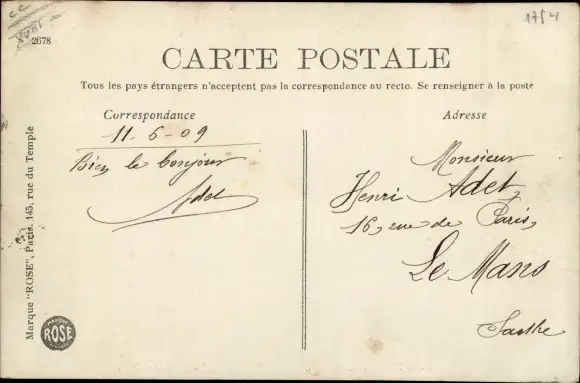 2678
1754
CARTE POSTALE
Tous les pays étrangers n'acceptent pas la correspondance au recto. Se renseigner à la poste
Correspondance
11-6-09
Bien le bonjour
Adet
Adresse
Monsieur
Henri Adet,
16, rue de Paris,
Le Mans
Sarthe
Marque "ROSE", Paris. 145, rue du Temple
ROSE